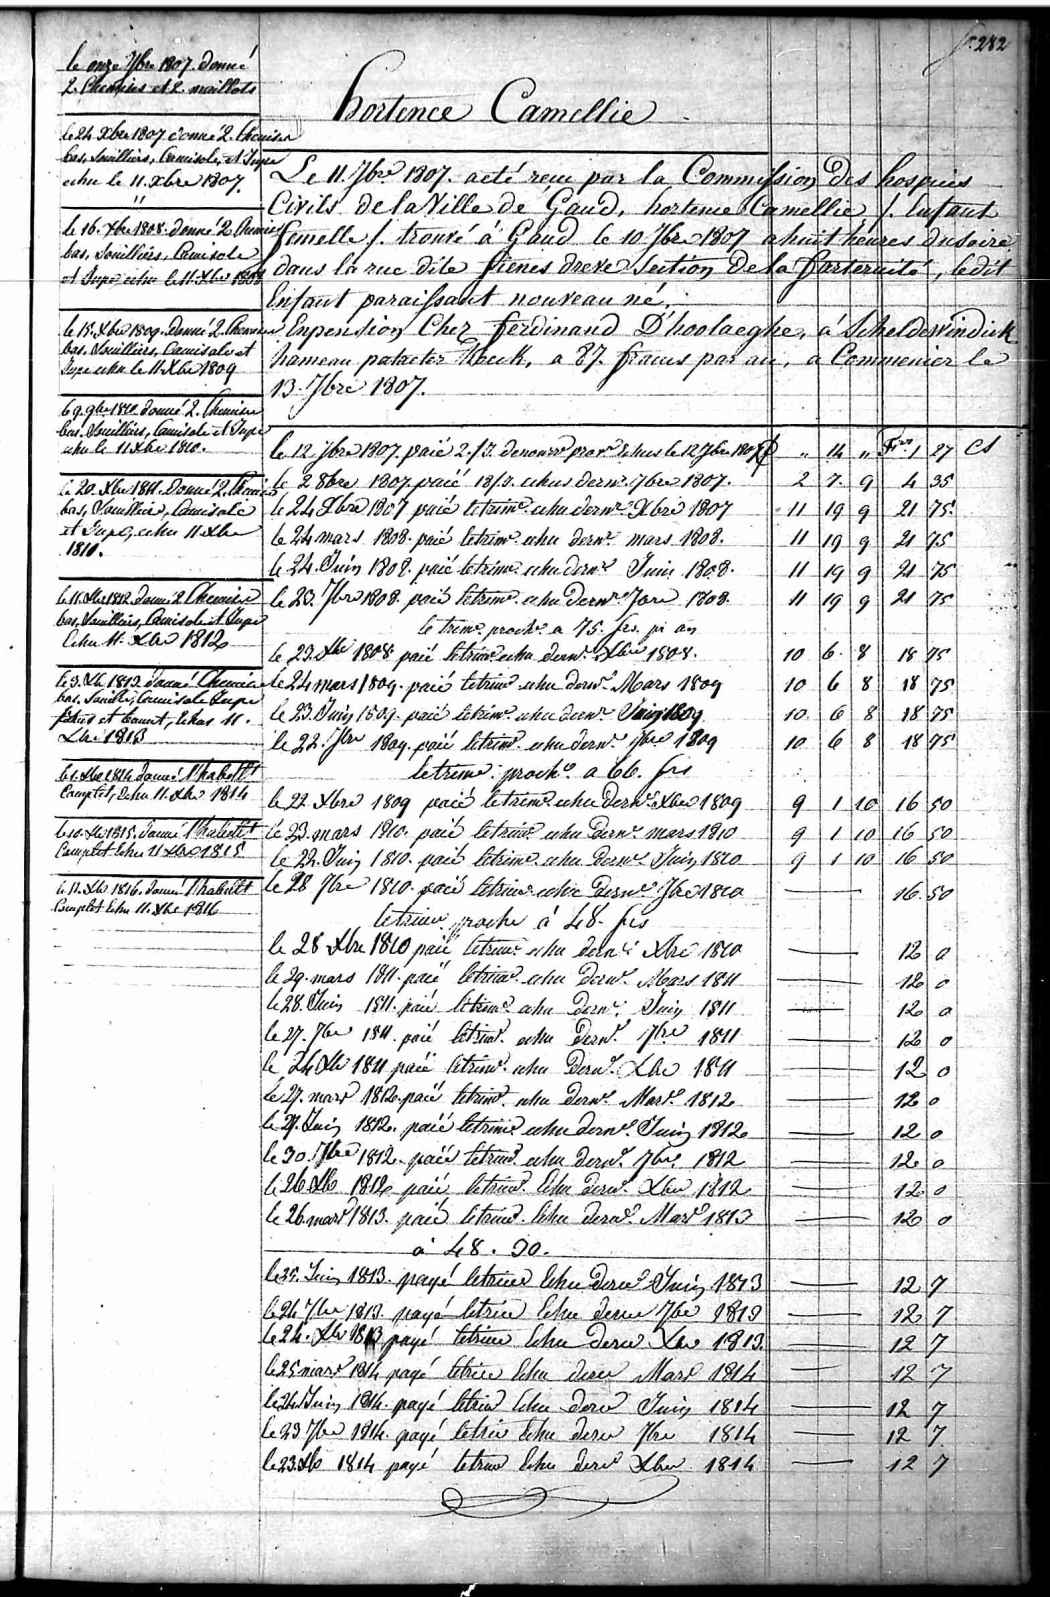 f. 282
le onze 7bre 1807. donné
2. Chemises et 2 maillots
le 24 Xbre 1807 donné 2. Chemises
bas, Souilliers, Camisole, et Jupe
echu le 11. Xbre 1807.
"
le 16. Xbre 1808. donné 2 Chemises
bas, Souilliers, Camisole
et Jupe echu le 11. Xbre 1808
le 15. Xbre 1809. donné 2. Chemises
bas. Souilliers, Camisole et
Jupe echu le 11 Xbre 1809
le 9. 1810. donné 2. Chemises
bas. Souilliers, Camisole et Jupe
echu le 11 Xbre 1810.
le 20. Xbre 1811. Donné 2. Chemises
bas, Souilliers, Camisole
et Jupe, echu 11 Xbre
1811.
le 11. Xbre 1812. donné 2 Chemises
bas, Souilliers, Camisole et Jupe
Echu 11. Xbre 1812
le 3. Xb 1813. donné Chemises
bas. Camisole Jupe
et Echus 11.
Xbre 1813
le 1. Xbre 1814 donné l'habillt
Complet, Echu 11. Xbre 1814
le 10. Xb 1815. donné l'habillt
Complet Echu 11 Xbre 1815
le 11. Xbr 1816. donné l'habillt
Complet Echu 11. Xbre 1816
hortence Camellie
Le 11. 7bre 1807. acté recu par la Commission des hospices
Civils de la Ville de Gand, hortence Camellie /. Enfant
femelle /. trouvé à Gand le 10. 7bre 1807 a huit heures du soire
dans la rue dite fienes dreve Section de la fraternité, ledit
Enfant paraissant nouveau né.
En pension Chez ferdinand D'hoolaeghe, à Scheldewindick
hameau, a 87. francs par an, a Commencer le
13. 7bre 1807.
le 12 7bre 1807. paié 2./3. de echus le 12 7bre 1807 " 14 " Frs 1 27 Cs
le 2 8bre 1807 paié 18/3. echus dernr. 7bre 1807. 2 7. 9 4 35
le 24 Xbre 1807 paié le trimr. echu dernr. Xbre 1807 11 19 9 21 75
le 24 mars 1808. paié le trimr. echu dernr. mars 1808. 11 19 9 21 75
le 24. Juin 1808. paié le trimr. echu dernr. Juin 1808. 11 19 9 21 75
le 23. 7bre 1808. paié le trimr. echu dernr. 7bre 1808. 11 19 9 21 75
le trimr. proche. a 75. frs. pr an
le 23. Xbre 1808 paié le trimr. echu dernr. Xbre 1808. 10 6. 8 18 75
le 24 mars 1809. paié le trimr. echu dernr. Mars 1809 10 6 8 18 75
le 23. Juin 1809. paié le trimr. echu dernr. Juin 1809 10. 6 8 18 75
le 22. 7bre 1809. paié le trimr. echu dernr. 7bre 1809 10 6 8 18 75
le trimr. proche. a 66. frs
le 22 Xbre 1809 paié le trimr. echu dernr. Xbre 1809 9 1 10 16 50
le 23. mars 1810. paié le trimr. echu dernr. mars 1810 9 1 10 16 50
le 22. Juin 1810. paié le trimr. echu dernr. Juin 1810 9 1 10 16 50
le 28 7bre 1810. paié le trimr. echu dernr. 7bre 1810 — 16. 50
le trimr. proche à 48. frs
le 28 Xbre 1810 paié le trimr. echu dernr. Xbre 1810 — 12 0
le 29. mars 1811. paié le trimr. echu dernr. Mars 1811 — 12 0
le 28. Juin 1811. paié le trimr. echu dernr. Juin 1811 — 12 0
le 27. 7bre 1811. paié le trimr. echu dernr. 7bre 1811 — 12 0
le 24 Xbre 1811 paié le trimr. echu dernr. Xbre 1811 — 12 0
le 27. mars 1812. paié le trimr. echu dernr. Mars. 1812 — 12 0
le Juin 1812. paié le trimr. echu dernr. Juin 1812 — 12 0
le 30. 7bre 1812. paié le trimr. echu dernr. 7bre. 1812 — 12. 0
le 26 Xb 1812 paié le trimr. Echu dernr. Xbre 1812 — 12 0
le 26. mars 1813. paié le trimr. Echu dernr. Mars 1813 — 12 0
à 48. 30.
le 25. Juin 1813. payé le trimr Echu dernr Juin 1813 — 12 7
le 24 7bre 1813. payé le trimr Echu dernr 7bre 1813 — 12 7
le 24. Xbr 1813 payé le trimr Echu dernr Xbre 1813. — 12 7
le 25 mars 1814 payé le trimr Echu dernr Mars 1814 — 12 7
le 24 Juin 1814. payé le trimr Echu dernr Juin 1814 — 12 7
le 23 7bre 1814. payé le trimr Echu dernr 7bre 1814 — 12 7.
le 23. Xb 1814 payé le trimr Echu dernr Xbre 1814 — 12 7